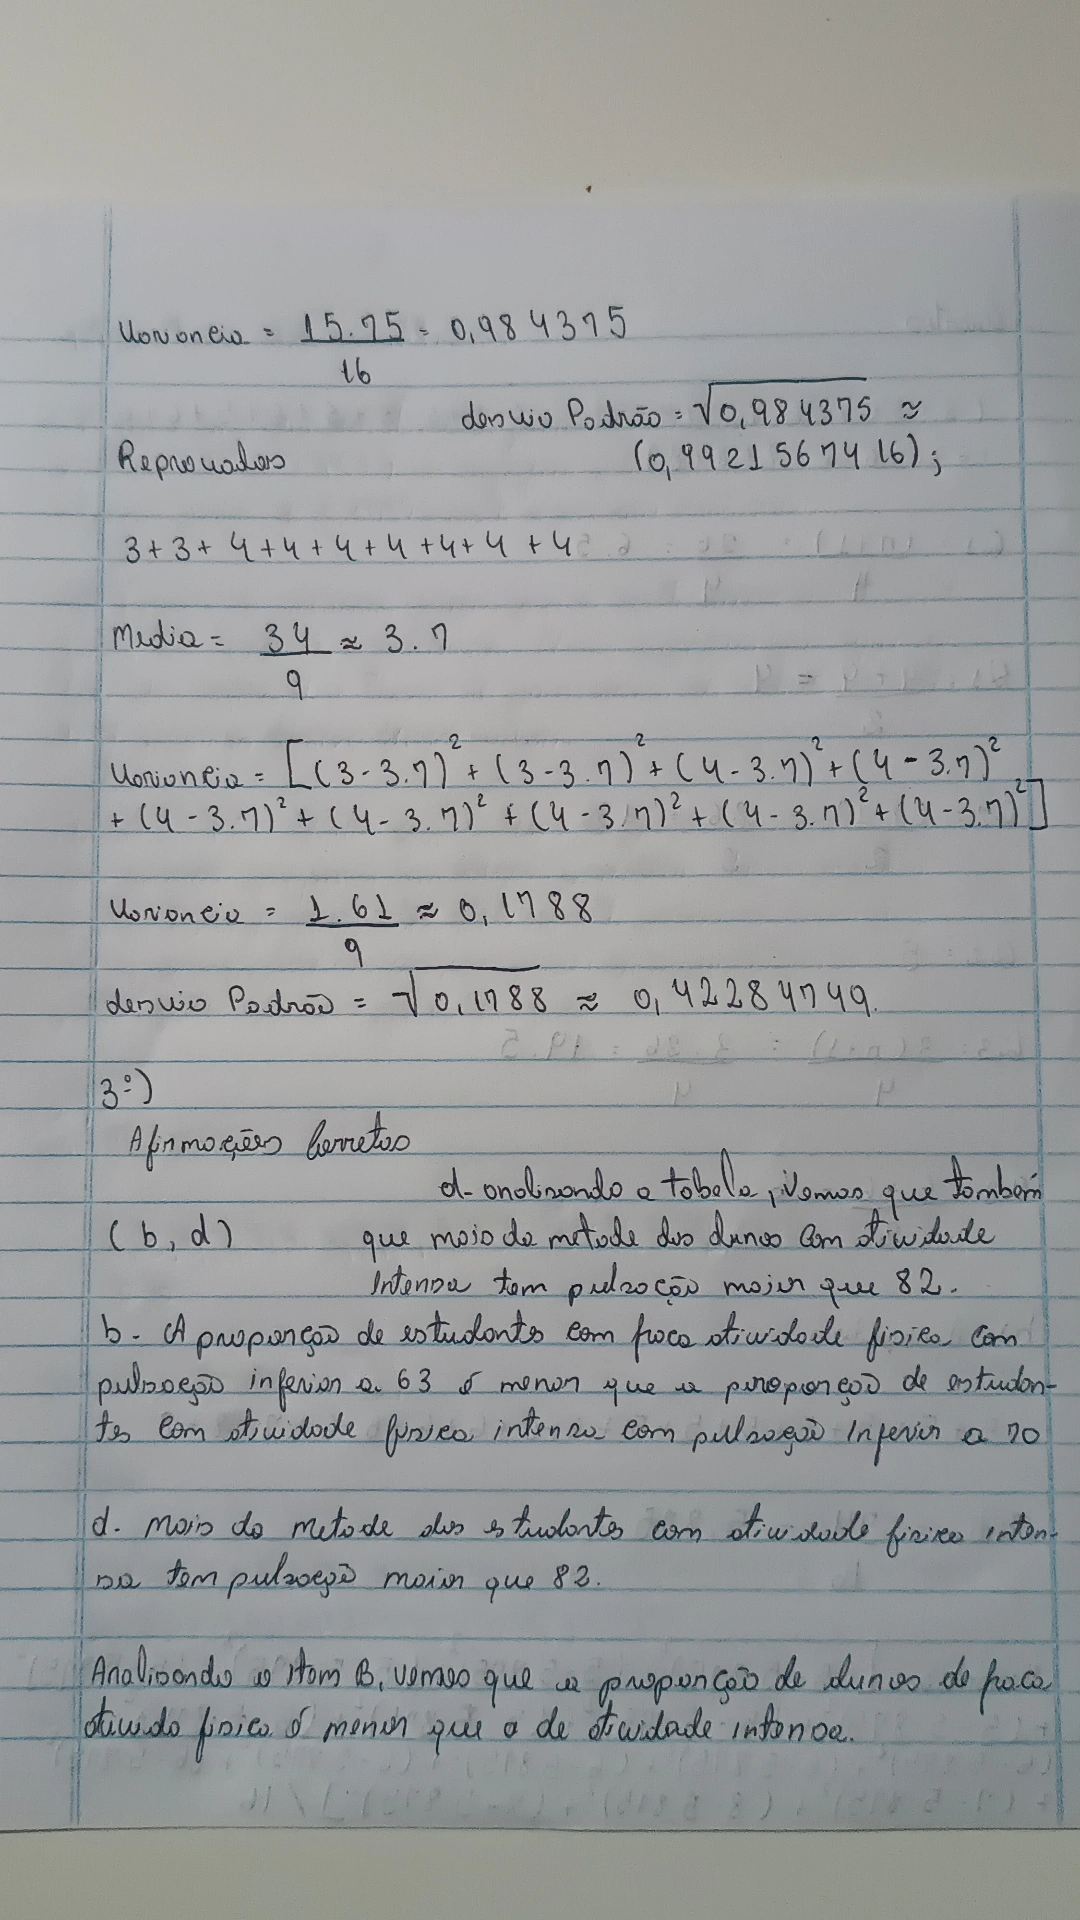 Variancia = 15.75 = 0,984375
16
desvio Padrão = √0,984375 ≈
Reprovados (0,99215674 16);
3+3+4+4+4+4+4+4+4
Media = 34 ≈ 3.7
9
Variancia = [(3-3.7)² + (3-3.7)² + (4-3.7)² + (4-3.7)²
+ (4-3.7)² + (4-3.7)² + (4-3.7)² + (4-3.7)² + (4-3.7)²]
Variancia = 1.61 ≈ 0,1788
9
desvio Padrão = √0,1788 ≈ 0,42284749.
3º)
Afirmações Corretas
d- analisando a tabela, vemos que também
(b, d) que mais da metade dos alunos com atividade
Intensa tem pulsação maior que 82.
b- A proporção de estudantes com poca atividade fisica com
pulsação inferior a 63 é menor que a proporção de estudan-
tes com atividade fisica intensa com pulsação Inferir a 70
d. mais da metade dos estudantes com atividade fisica inten-
sa tem pulsação maior que 82.
Analisando o Item B, vemos que a proporção de alunos de poca
ativida fisica é menor que a de atividade intensa.